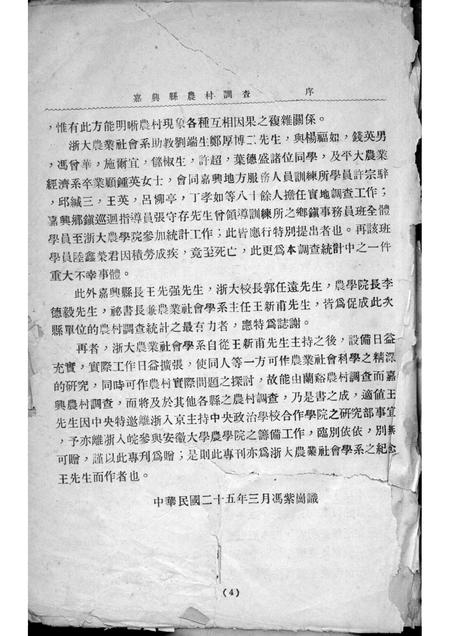 嘉興縣農村調查　序
，惟有此方能明晰農村現象各種互相因果之複雜關係。
浙大農業社會系助教劉端生鄭厚博二先生，與楊福如，錢英男
，馮曾華，施爾宜，儲椒生，許超，葉德盛諸位同學，及平大農業
經濟系卒業顧鍾英女士，會同嘉興地方服務人員訓練所學員許宗駬
，邱緘三，王英，呂柳亭，丁孝如等八十餘人擔任實地調查工作；
嘉興鄉鎮巡迴指導員張守存先生曾領導訓練所之鄉鎮事務員班全體
學員至浙大農學院參加統計工作；此皆應行特別提出者也。再該班
學員陸鑫榮君因積勞成疾，竟至死亡，此更爲本調查統計中之一件
重大不幸事體。
此外嘉興縣長王先强先生，浙大校長郭任遠先生，農學院長李
德毅先生，祕書長兼農業社會學系主任王新甫先生，皆爲促成此次
縣單位的農村調查統計之最有力者，應特爲誌謝。
再者，浙大農業社會學系自從王新甫先生主持之後，設備日益
充實，實際工作日益擴張，使同人等一方可作農業社會科學之精深
的研究，同時可作農村實際問題之探討，故能由蘭谿農村調查而嘉
興農村調查，而將及於其他各縣之農村調查，乃是書之成，適値王
先生因中央特邀離浙入京主持中央政治學校合作學院之研究部事宜
，予亦離浙入皖參與安徽大學農學院之籌備工作，臨別依依，別無
可贈，謹以此專刊爲贈；是則此專刊亦爲浙大農業社會學系之紀念
王先生而作者也。
中華民國二十五年三月馮紫崗識
(4)